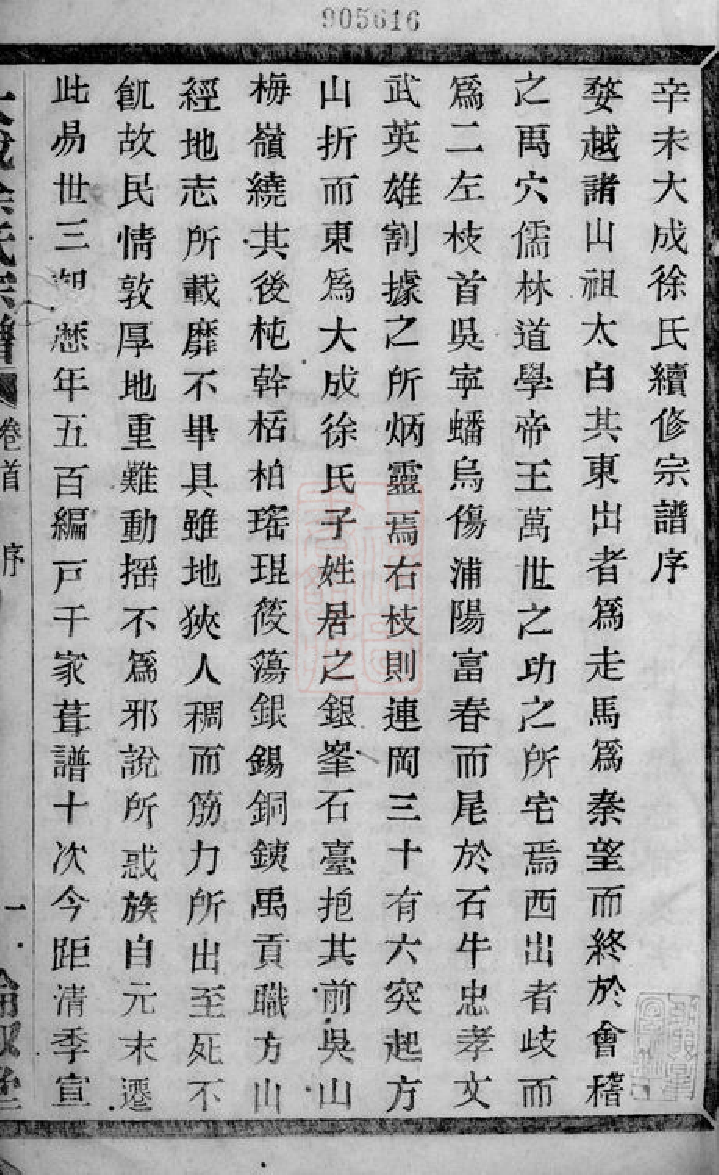 905616
辛未大成徐氏續修宗譜序
婺越諸山祖太白其東出者爲走馬爲秦望而終於會稽
之禹穴儒林道學帝王萬世之功之所宅焉西出者歧而
爲二左枝首吳寧蟠烏傷浦陽富春而尾於石牛忠孝文
武英雄割據之所炳靈焉右枝則連岡三十有六突起方
山折而東爲大成徐氏子姓居之銀峯石臺抱其前吳山
梅嶺繞其後杶幹栝柏瑤琨筱簜銀錫銅銕禹貢職方山
經地志所載靡不畢具雖地狹人稠而筋力所出至死不
飢故民情敦厚地重難動搖不爲邪說所惑族自元末遷
此易世三朝歷年五百編戸千家葺譜十次今距清季宣
大成徐氏宗譜 卷首 序 一 倫敘堂